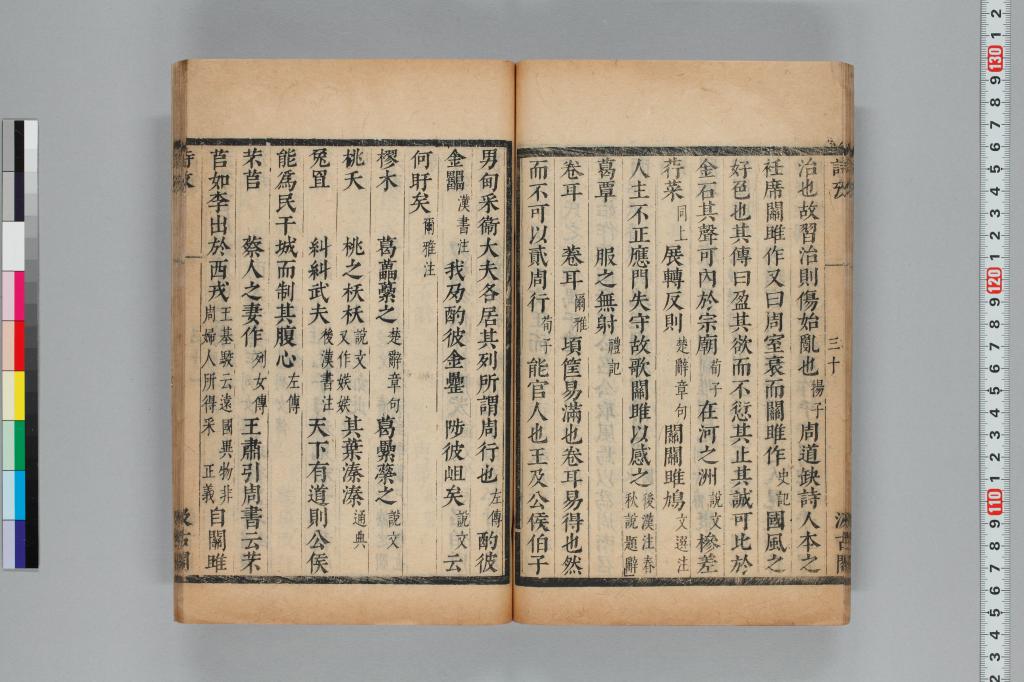 治也故習治則傷始亂也揚子周道缺詩人本之
衽席關雎作又曰周室衰而關雎作史記國風之
好色也其傳曰盈其欲而不愆其止其誠可比於
金石其聲可內於宗廟荀子在河之洲說文槮差
荇菜同上展轉反則楚辭章句關關雎鳩文選注
人主不正應門失守故歌關雎以感之後漢注春秋說題辭
葛覃 服之無射禮記
卷耳 卷耳爾雅頃筐易滿也卷耳易得也然
而不可以貳周行荀子能官人也王及公侯伯子
男甸采衞大夫各居其列所謂周行也左傳酌彼
金罍漢書注我夃酌彼金罍 陟彼岨矣說文云
何盱矣爾雅注
樛木 葛藟虆之楚辭章句葛虆蘂之說文
桃夭 桃之枖枖說文又作㛍㛍其葉溱溱通典
兔罝 糾糾武夫後漢書注天下有道則公侯
能爲民干城而制其腹心左傳
芣苢 蔡人之妻作列女傳王肅引周書云芣
苢如李出於西戎王基駮云遠國異物非周婦人所得采 正義自關雎
詩攷
三十
汲古閣
詩攷
汲古閣
130
120
110